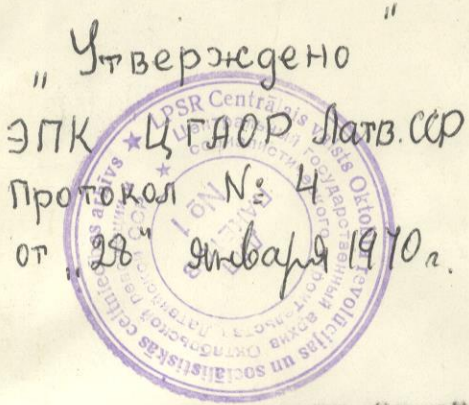 "Утверждено"
ЭПК ЦГАОР Латв.ССР
Протокол № 4
от "28" января 1970 г.
LPSR Centrālais valsts Oktobra revolūcijas un sociālistiskās celtniecības arhīvs
Центральный государственный архив Октябрьской Революции и социалистического строительства Латвийской ССР
ДЛЯ
ПАКЕТОВ
№ 1